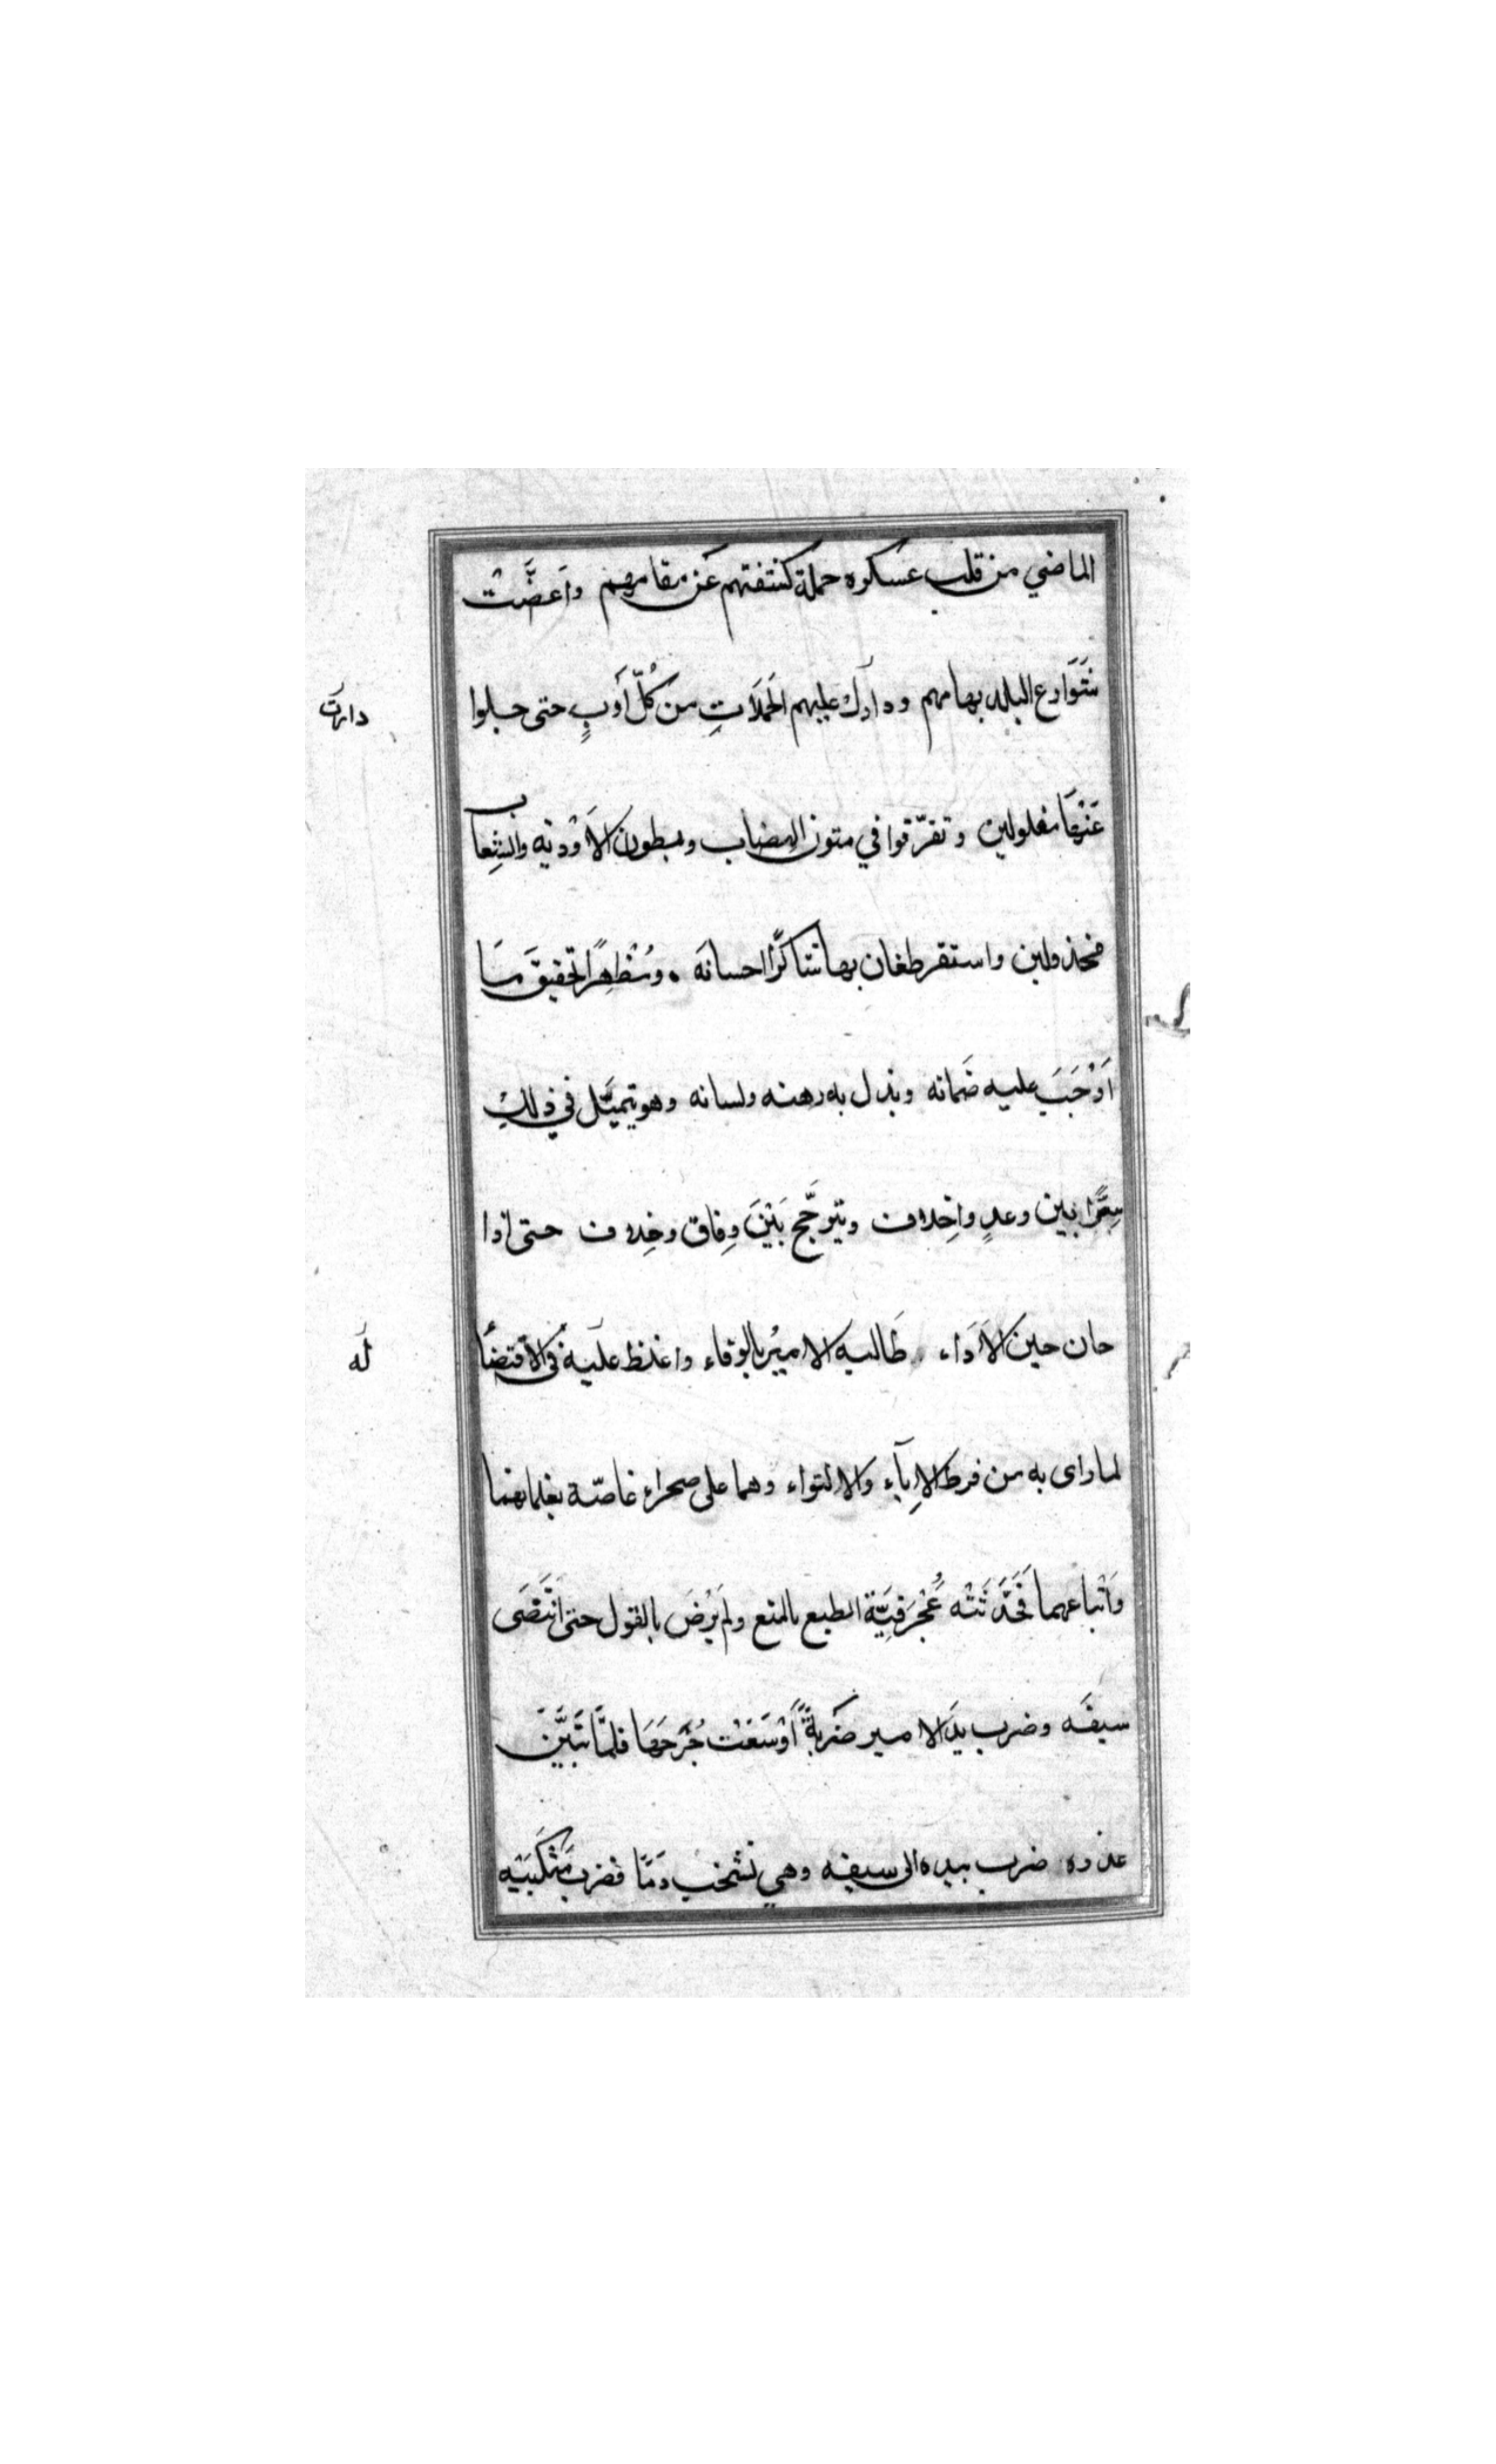 الماضي من قلب عسكره حملة كشفتهم عن مقامهم واَعضَّتْ
شَوَارع البلد بهامهم ودارك عليهم الحَملَاتِ من كُلّ أَوبٍ حتى جلوا
دارت
عَنْهَا مغلولين وتفرّقوا في متون الهضاب وبطون الاَوْديه والشِعاب
مخذولين واستقر طغان بها شاكرًا احسانَه ومُظهِرًا تحقيقَ مَا
اَوْجَبَ عليه ضَمانه وبذل به رهنه ولسانه وهو يتميَّل في ذلكِ
سِرًّا بين وعدٍ واِخلاف ويترجَّح بَيْنَ وِفاق وخِلاف حتى اذا
حان حين الاَدَاء طَالبه الاميرُ بالوفاء واغلظ عليه في الاقتضأ
لَه
لما رای به من فرط الاِبآء والالتواء وهما على صحراء غاصّة بغلمانهما
وَاَتباعهما فَحَدَّثَتْه عُجْرَفيَّة الطبع بالمنع ولم يَرْضَ بالقول حتى انتَضَى
سيفَه وضرب يدَ الامير ضَربةً اَوْسَعَتْ جُرحَهَا فلمَّا تَبَيَّنَ
غدره ضرب بيده الى سيفه وهي تشخبُ دَمًا فضرب مَنْكَبَيْه